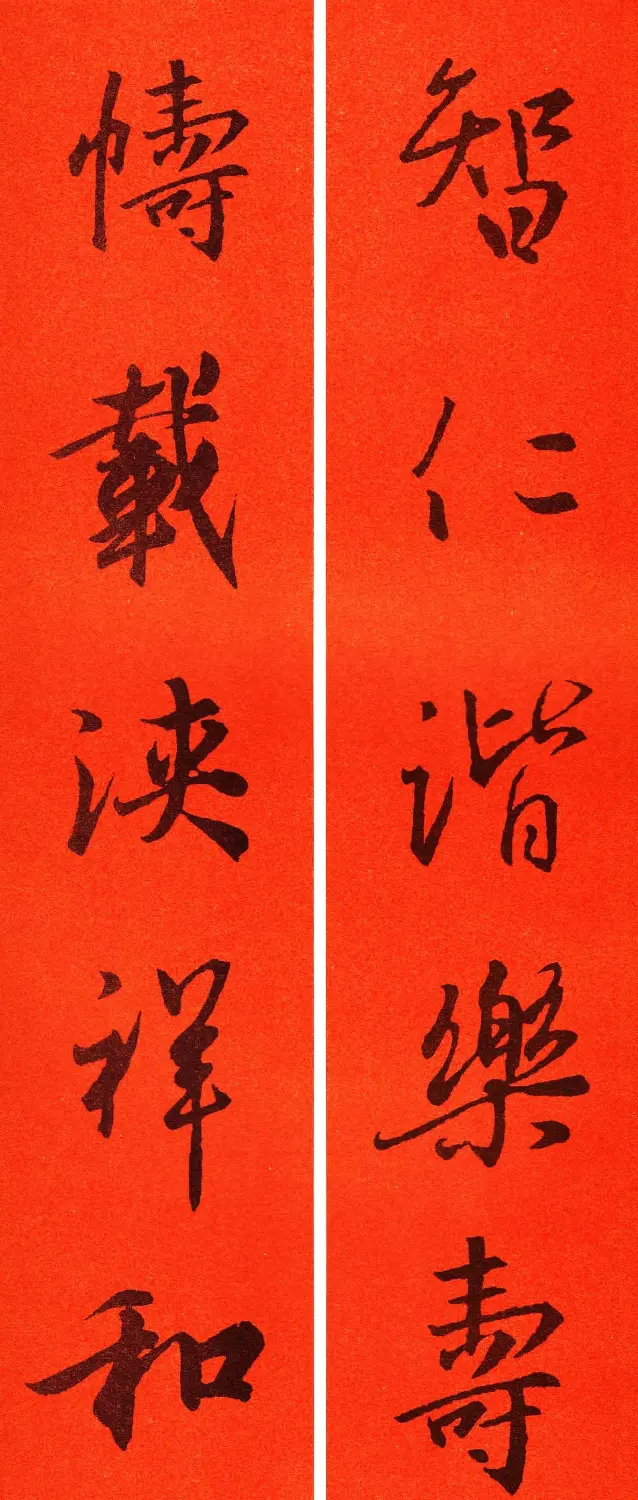 智仁諧樂壽
幬載浹祥和